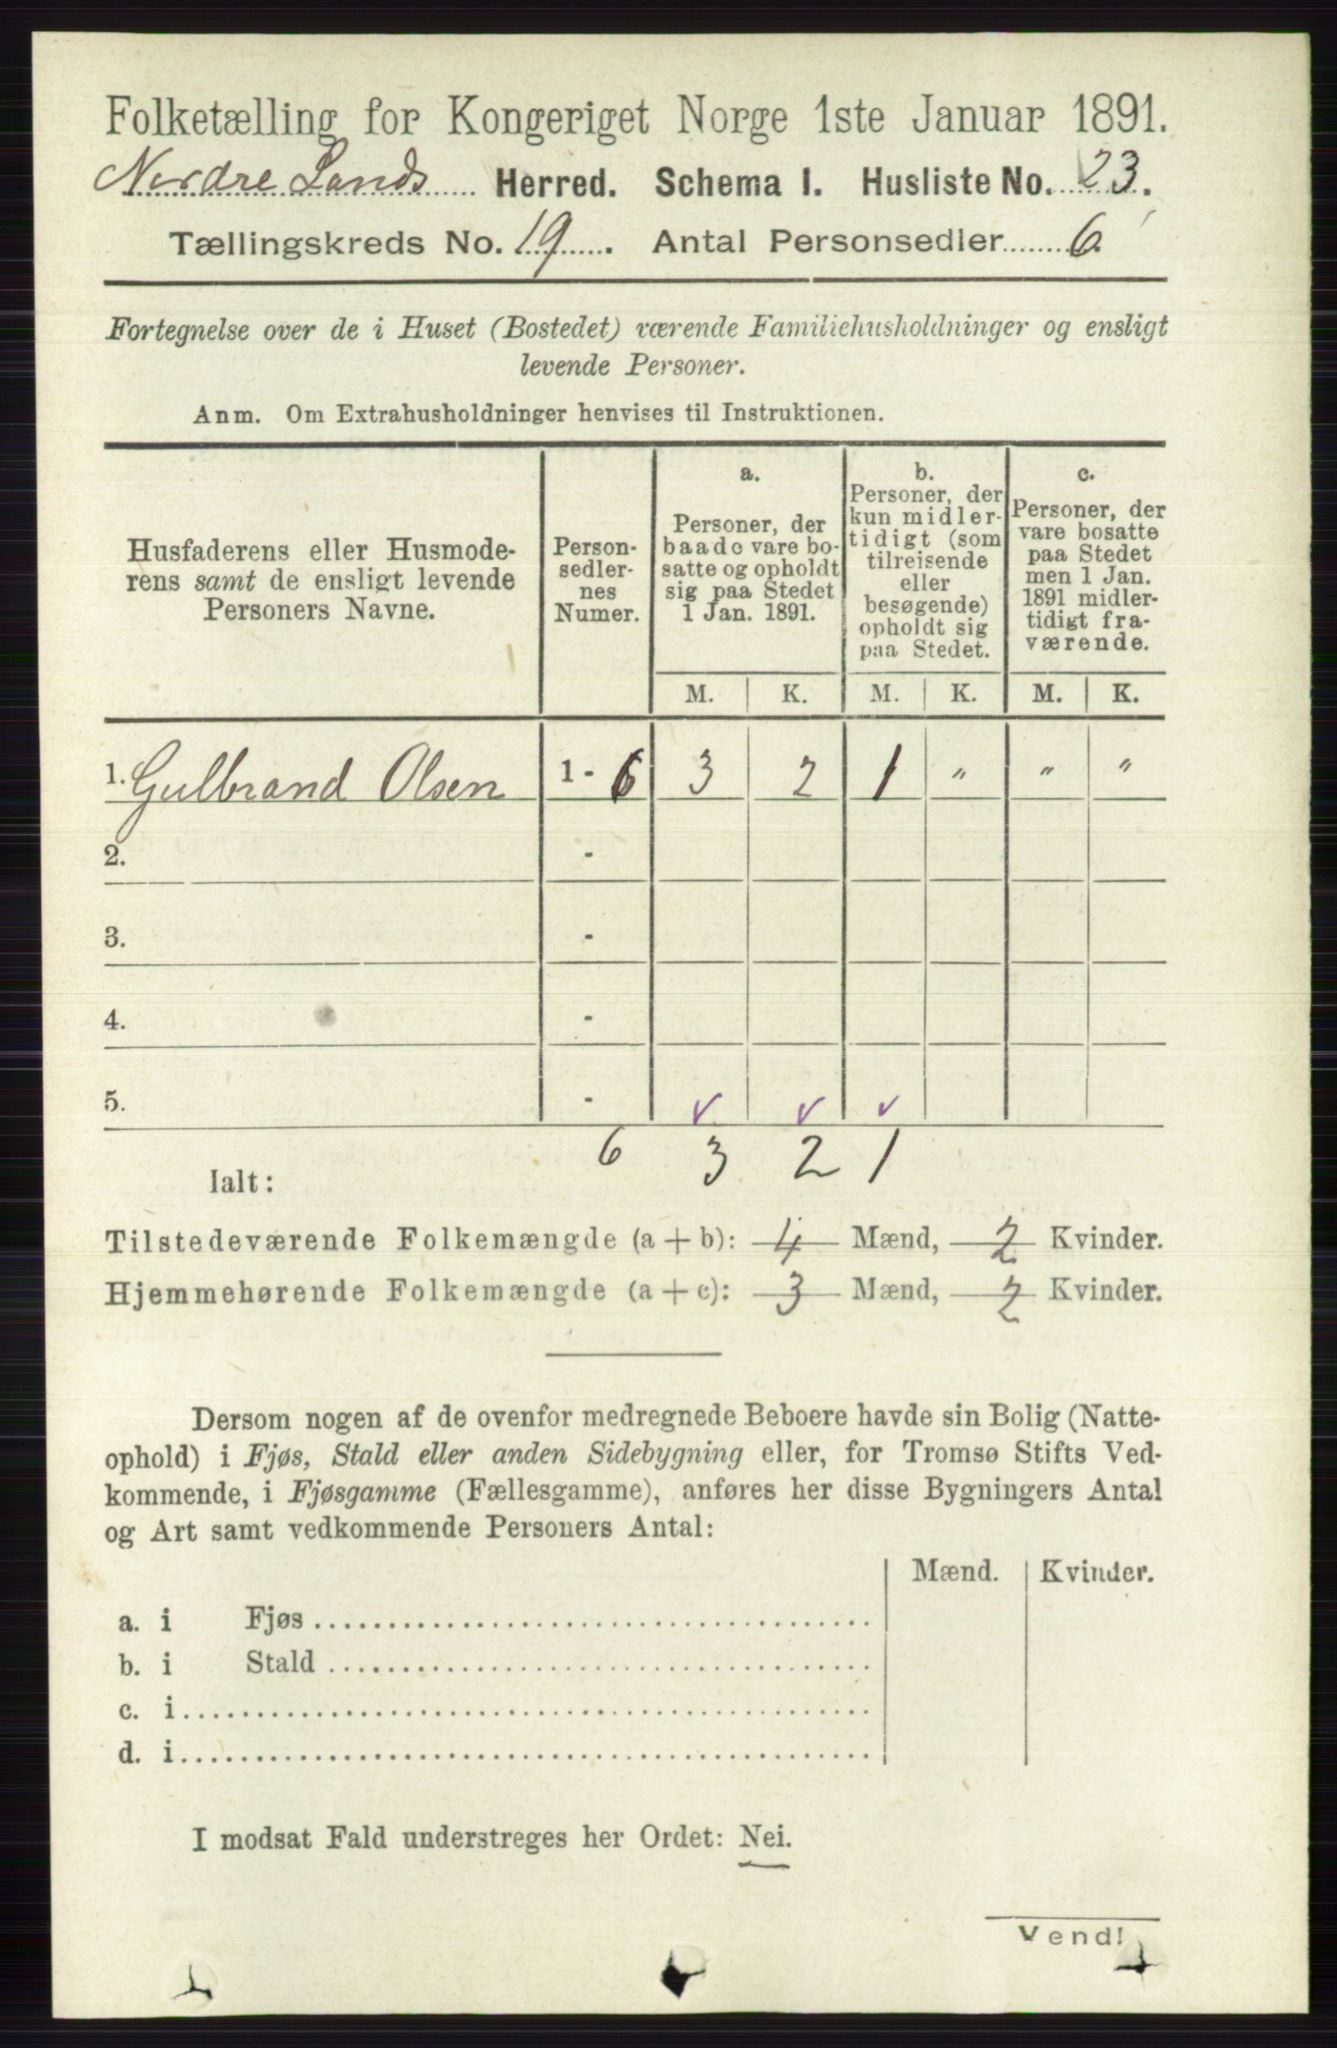 Folketælling for Kongeriget Norge 1ste Januar 1891.
Nordre Lands Herred. Schema I. Husliste No. 23.
Tællingskreds No. 19. Antal Personsedler 6
Fortegnelse over de i Huset (Bostedet) værende Familiehusholdninger og ensligt
levende Personer.
Anm. Om Extrahusholdninger henvises til Instruktionen.
Husfaderens eller Husmode-
rens samt de ensligt levende
Personers Navne.
Person-
sedler-
nes
Numer.
a.
Personer, der
baade vare bo-
satte og opholdt
sig paa Stedet
1 Jan. 1891.
b.
Personer, der
kun midler-
tidigt (som
tilreisende
eller
besøgende)
opholdt sig
paa Stedet.
c.
Personer, der
vare bosatte
paa Stedet
men 1 Jan.
1891 midler-
tidigt fra-
værende.
M. K. M. K. M. K.
1. Gulbrand Olsen 1 - 6 3 2 1 " " "
2. -
3. -
4. -
5. -
6 3 2 1
Ialt:
Tilstedeværende Folkemængde (a + b): 4 Mænd, 2 Kvinder.
Hjemmehørende Folkemængde (a + c): 3 Mænd, 2 Kvinder.
Dersom nogen af de ovenfor medregnede Beboere havde sin Bolig (Natte-
ophold) i Fjøs, Stald eller anden Sidebygning eller, for Tromsø Stifts Ved-
kommende, i Fjøsgamme (Fællesgamme), anføres her disse Bygningers Antal
og Art samt vedkommende Personers Antal:
Mænd. Kvinder.
a. i Fjøs
b. i Stald
c. i
d. i
I modsat Fald understreges her Ordet: Nei.
Vend!